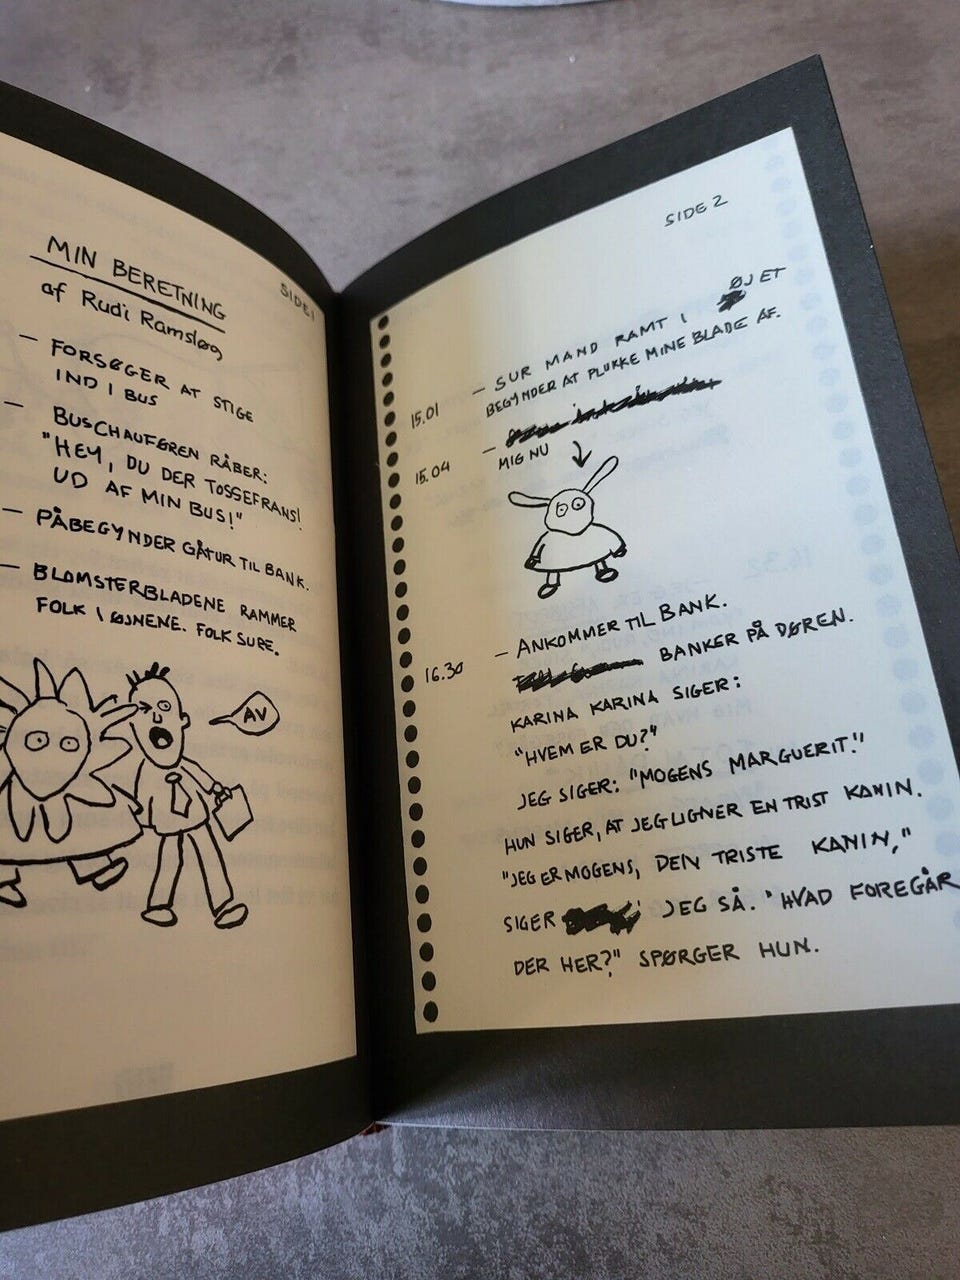 MIN BERETNING
af Rudi Ramsløg
SIDE 1
— FORSØGER AT STIGE
IND I BUS
— BUSCHAUFØREN RÅBER:
"HEY, DU DER TOSSEFRANS!
UD AF MIN BUS!"
— PÅBEGYNDER GÅTUR TIL BANK.
— BLOMSTERBLADENE RAMMER
FOLK I ØJNENE. FOLK SURE.
AV
SIDE 2
15.01 — SUR MAND RAMT I ØJET
BEGYNDER AT PLUKKE MINE BLADE AF.
15.04 —
MIG NU
16.30 — ANKOMMER TIL BANK.
BANKER PÅ DØREN.
KARINA KARINA SIGER:
"HVEM ER DU?"
JEG SIGER: "MOGENS MARGUERIT."
HUN SIGER, AT JEG LIGNER EN TRIST KANIN.
"JEG ER MOGENS, DEN TRISTE KANIN,"
SIGER JEG SÅ. "HVAD FOREGÅR
DER HER?" SPØRGER HUN.